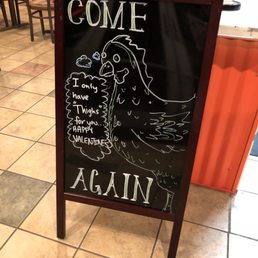 COME
I only
have
"Thighs"
for you
HAPPY
VALENTINES
AGAIN!